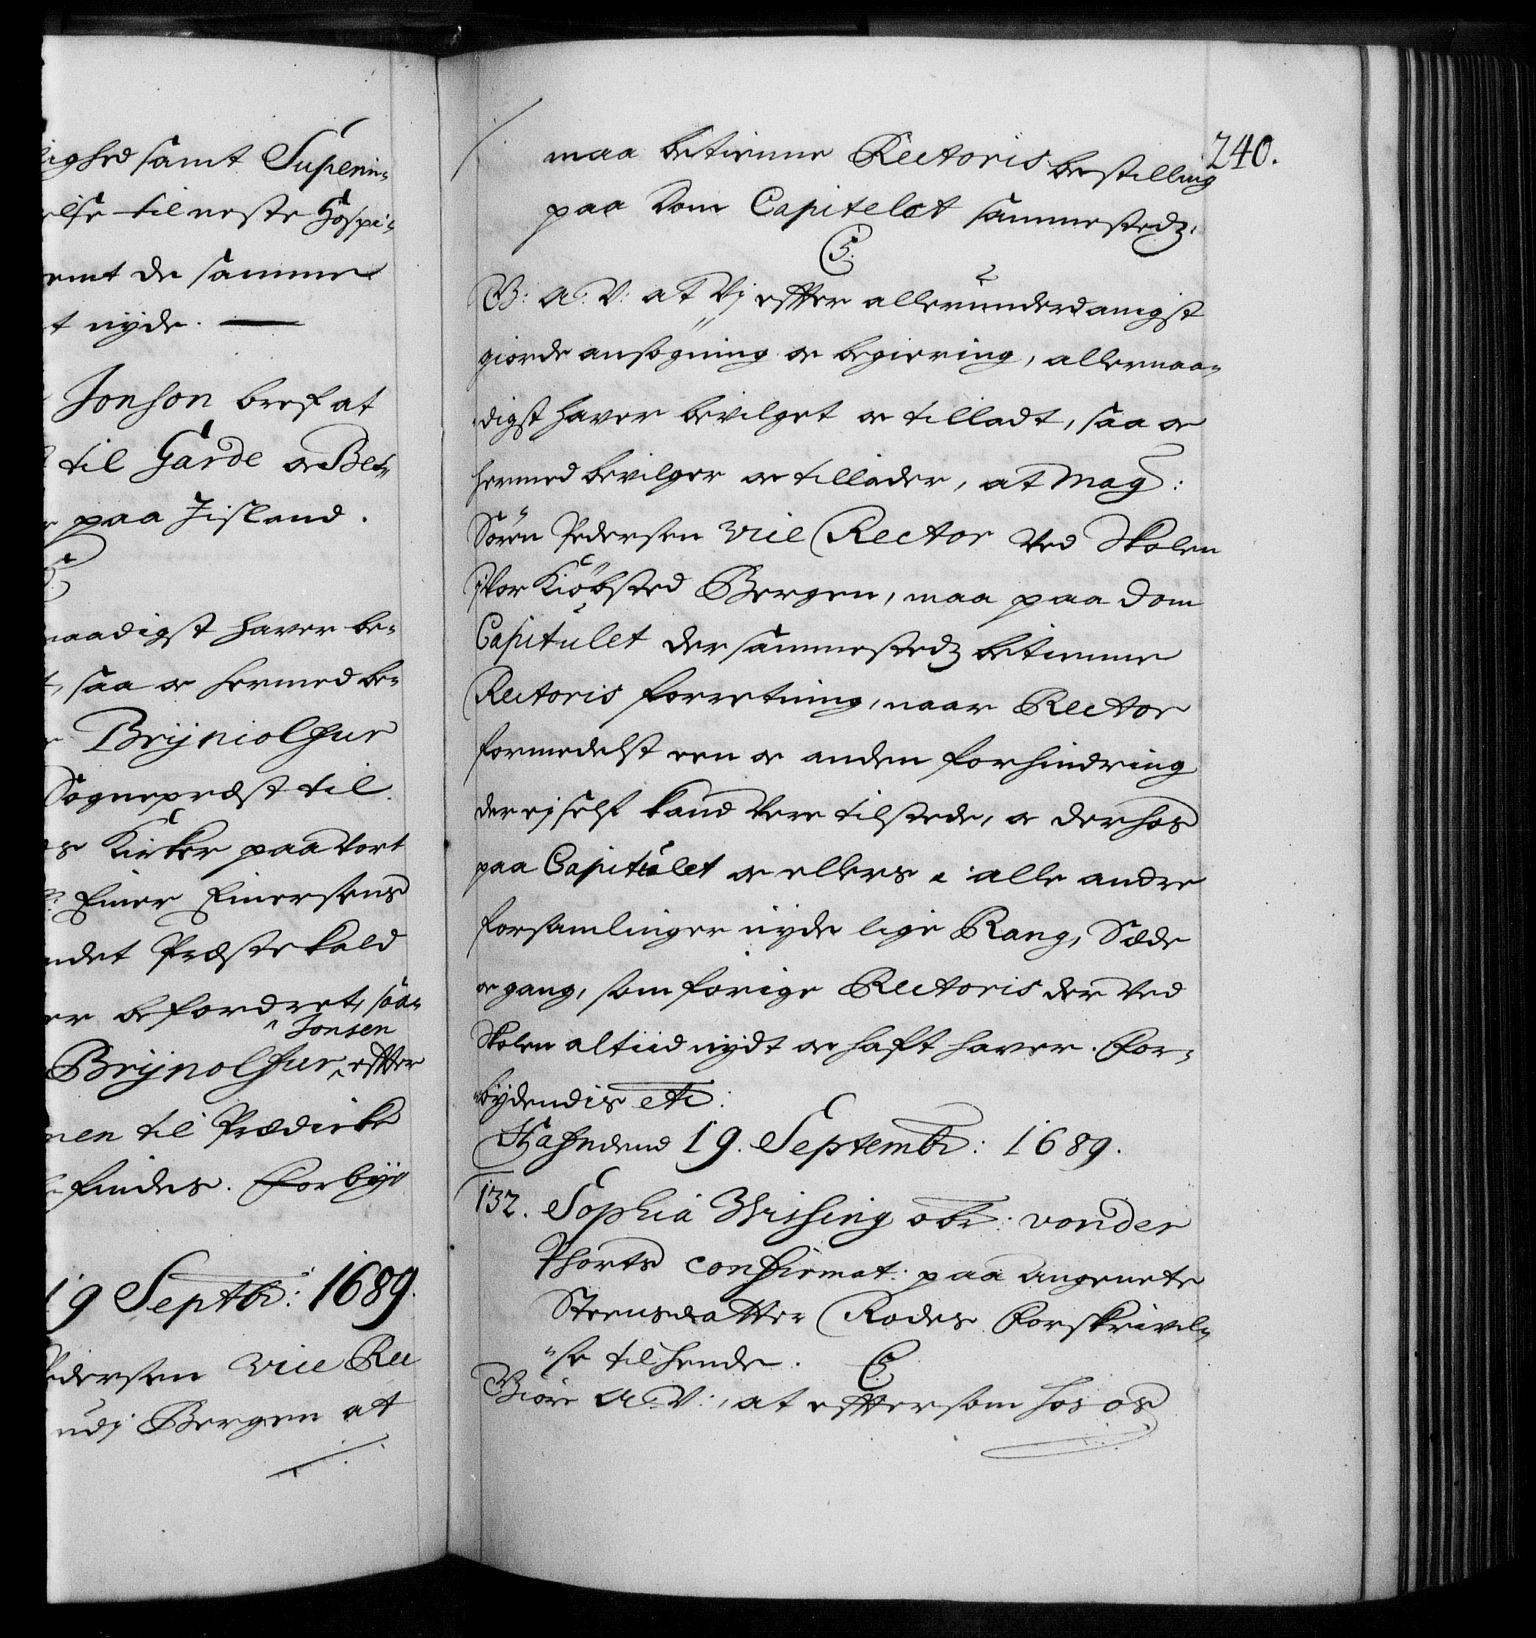 ighed samt Superin-
else til neste Hospi-
emt de samme
t nyde.
Jonson bref at
til Garde oc Bet-
paa Jisland.
naadigst hafver be-
t, saa oc hermed be-
Brijniolfur
Sognepræst til
Kirker paa Vort
Einer Einersens
ndet Præste kald
er befordret, saa-
Jonsen
Brijnolfur, effter
nen til Prædicke
findes. Forbyd
19 Septbr: 1689.
Pedersen Vice Rec
udj Bergen at
240.
maa betienne Rectoris bestilling
paa Dom Capitelet sammestedz.
C 5.
G: A: V: at Vj effter allerunderdanigst
giorde ansøgning oc begiering, allernaa-
digst hafver bevilget oc tilladt, saa oc
hermed bevilger oc tillader, at Mag:
Søren Pedersen Vice Rector Ved Skolen
j vor Kiøbsted Bergen, maa paa Dom
Capitulet der sammestedz betienne
Rectoris forretning, naar Rector
formedelst een oc anden forhindring
der ej self kand være tilstede, oc derhos
paa Capitulet oc ellers i alle andre
forsamlinger nyde lige Rang, Sæde
oc gang, som forige Rectoris der Ved
Skolen altiid nydt oc haft hafver. For-
bydendis etc:
Hafniæ 19. Septembr: 1689.
132. Sophia Wissing obr: vonder
Phorts confirmat: paa Angenete
Steensdatter Rodes Forskrivel-
se til hende. C.
Giøre A: V:, at eftersom hos os